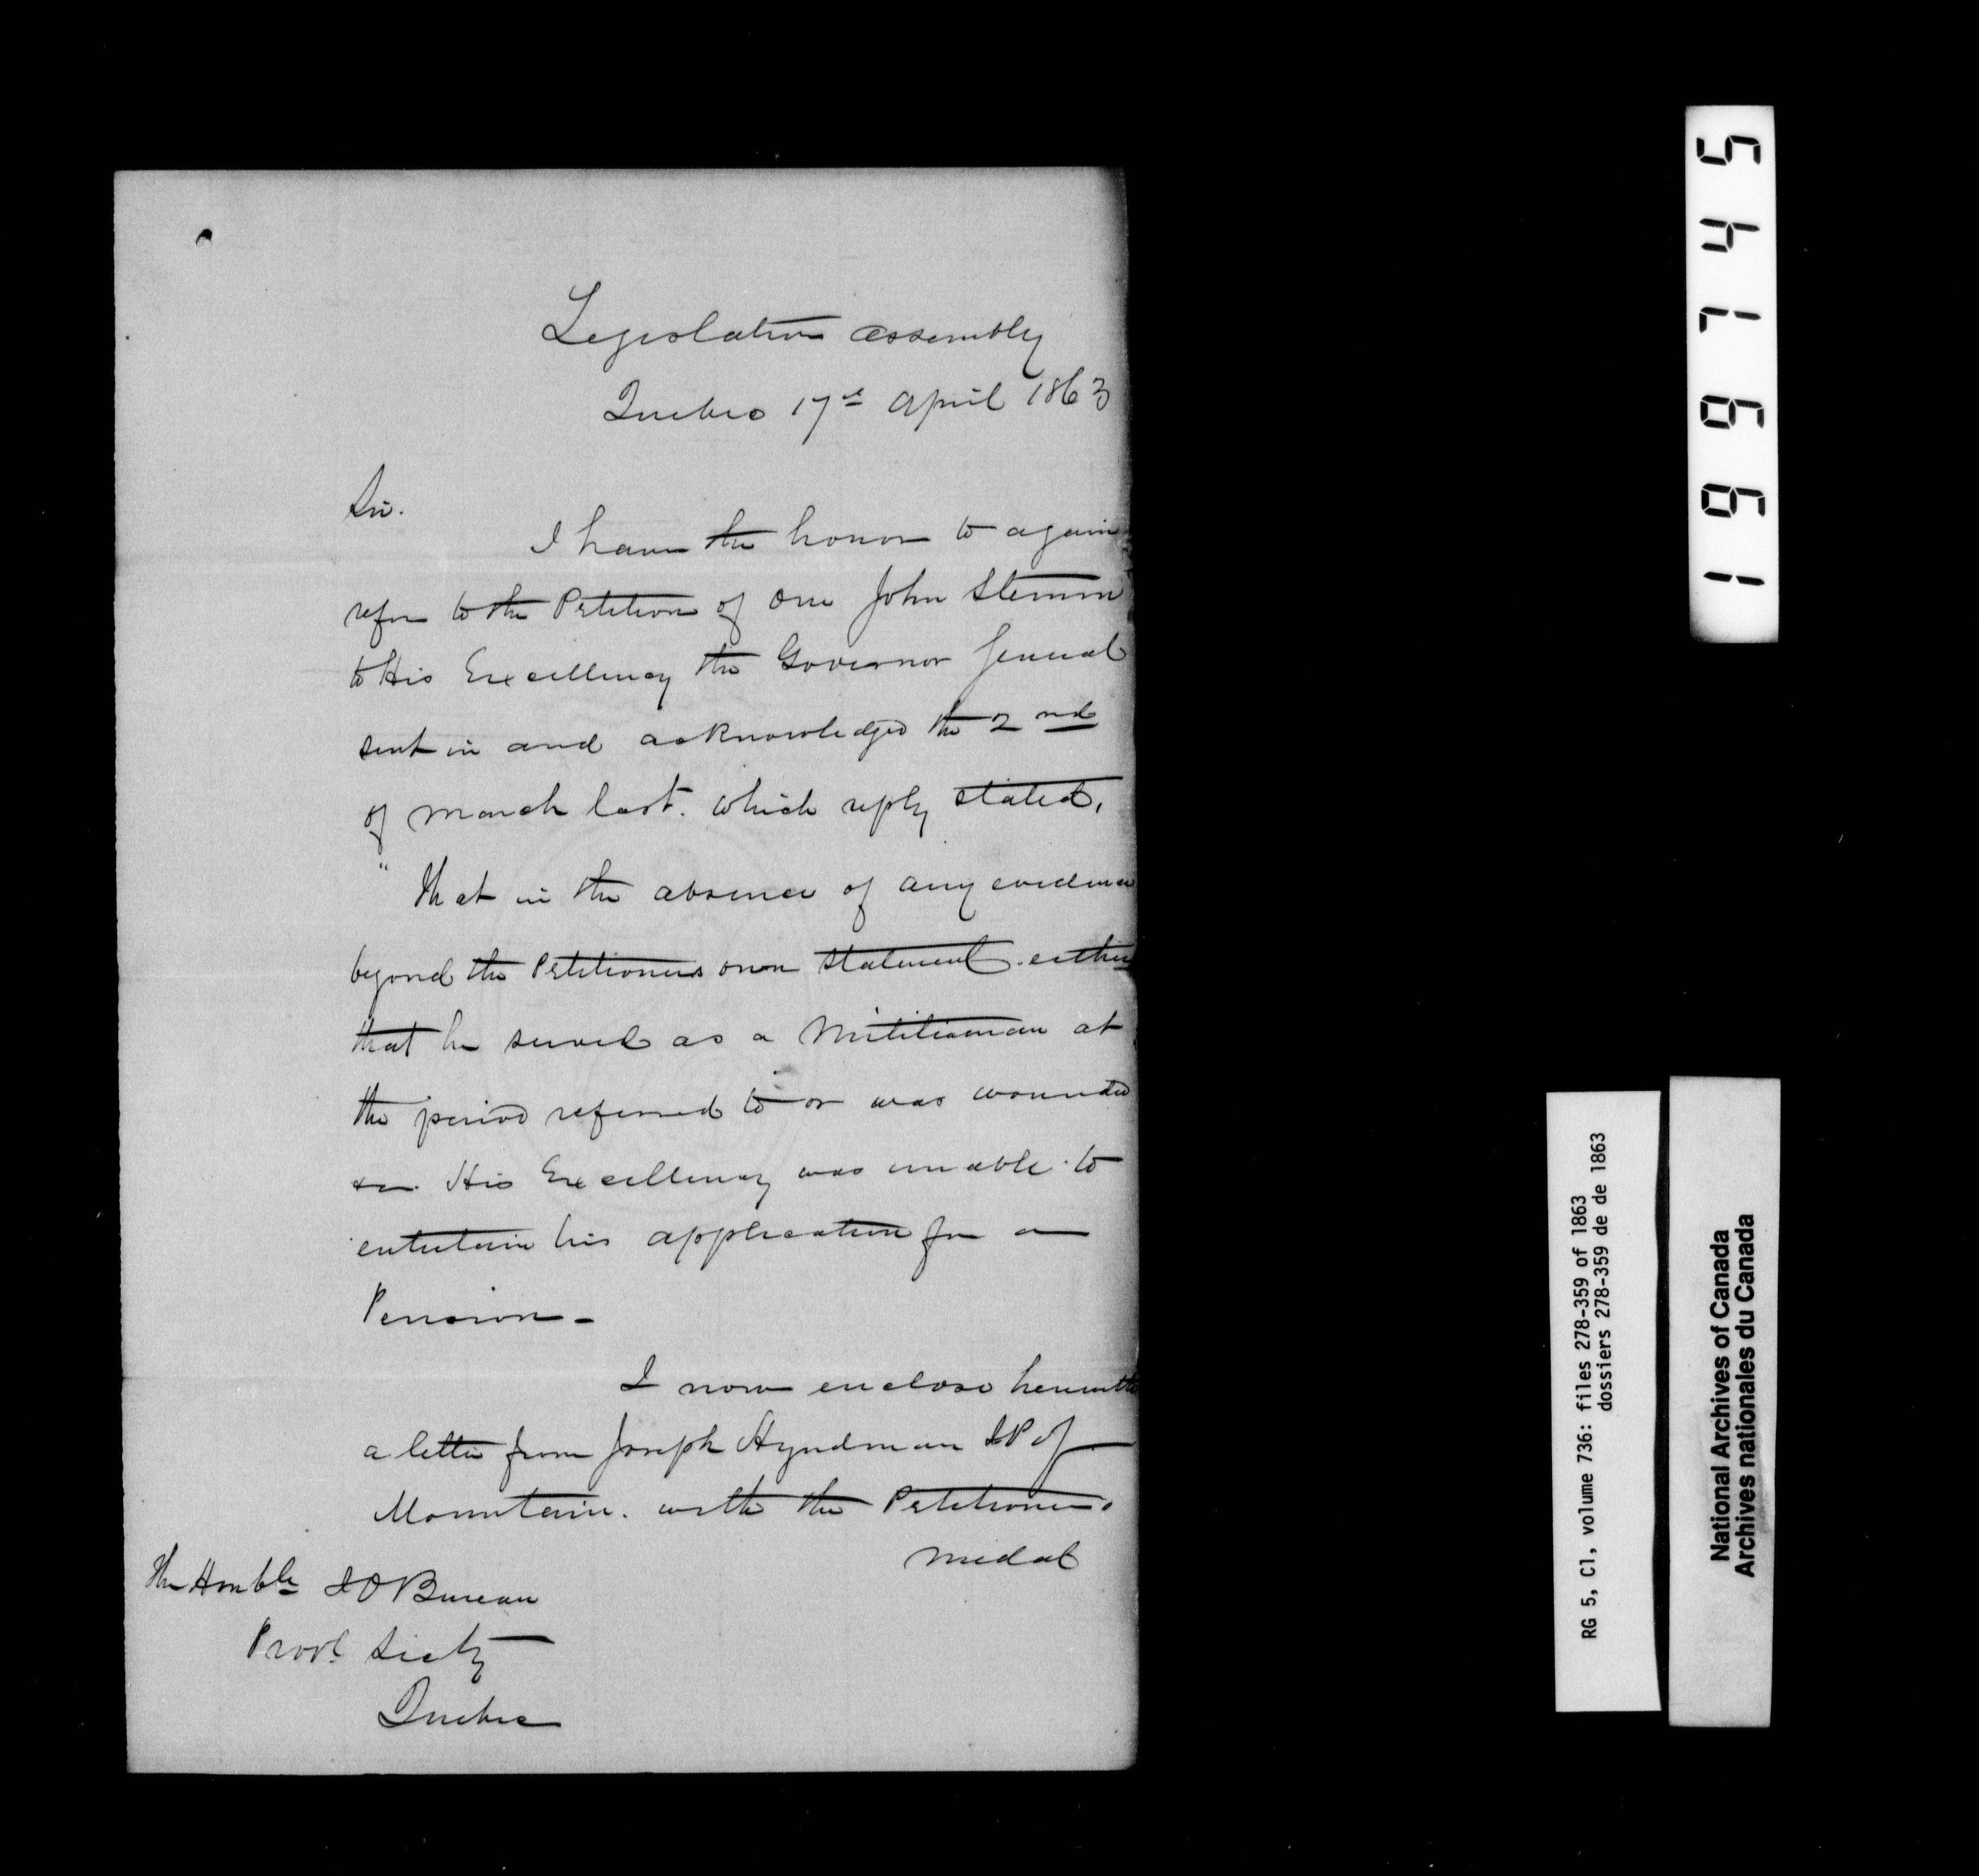 Legislative Assembly
Quebec 17th April 1863
Sir.
I have the honor to again
refer to the Petition of one John Stemm
to His Excellency the Governor General
sent in and acknowledged the 2nd
of March last. which reply stated,
"That in the absence of any evidence
beyond the Petitioners own statement either
that he served as a Militiaman at
the period referred to or was wounded
His Excellency was unable to
entertain his application for a
Pension -
I now enclose herewith
a letter from Joseph Hyndman JP of
Mountain. with the Petitioners
medal
The Honble J O Bureau
Provl Secty
Quebec
166745
RG 5, C1, volume 736: files 278-359 of 1863
dossiers 278-359 de de 1863
National Archives of Canada
Archives nationales du Canada